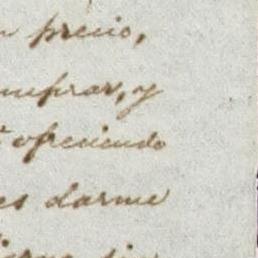 precio,
mprar, y
ofreciendo
es darme